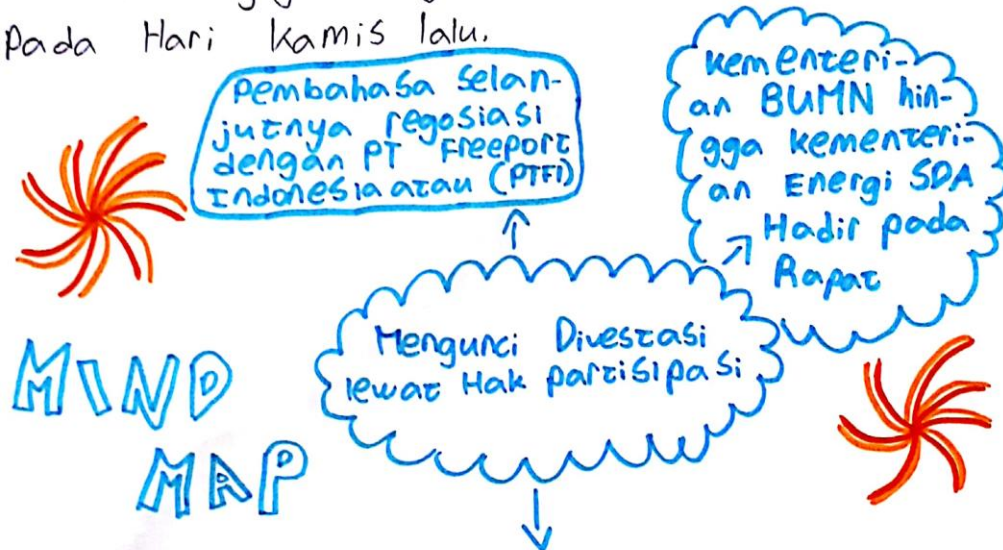 Pada Hari Kamis lalu.
Pembahasa Selan-
jutnya regosiasi
dengan PT Freeport
Indonesia atau (PTFI)
Kementeri-
an BUMN hin-
gga kementeri-
an Energi SDA
Hadir pada
Rapat
Mengunci Divestasi
lewat Hak partisipasi
MIND
MAP